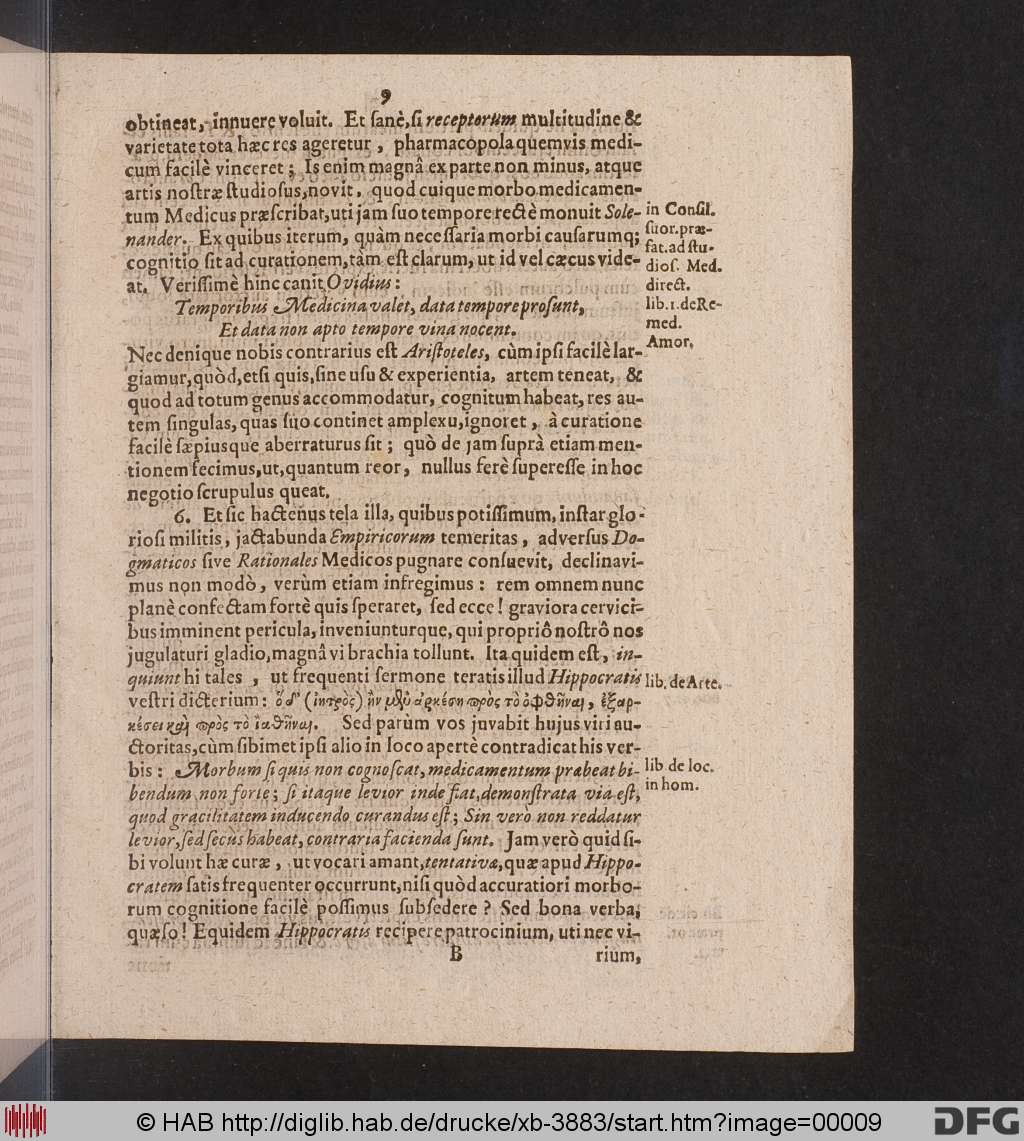 9
obtineat, innuere voluit. Et sanè, si receptorum multitudine &
varietate tota hæc res ageretur, pharmacopola quemvis medi-
cum facilè vinceret; Is enim magnâ ex parte non minus, atque
artis nostræ studiosus, novit, quod cuique morbo medicamen-
tum Medicus præscribat, uti jam suo tempore rectè monuit Sole-
nander. Ex quibus iterum, quàm necessaria morbi causarumq;
cognitio sit ad curationem, tàm est clarum, ut id vel cæcus vide-
at. Verissimè hinc canit Ovidius:
Temporibus Medicina valet, data tempore prosunt,
Et data non apto tempore vina nocent.
Nec denique nobis contrarius est Aristoteles, cùm ipsi facilè lar-
giamur, quòd, etsi quis, sine usu & experientia, artem teneat, &
quod ad totum genus accommodatur, cognitum habeat, res au-
tem singulas, quas suo continet amplexu, ignoret, à curatione
facilè sæpiusque aberraturus sit; quò de jam suprà etiam men-
tionem fecimus, ut, quantum reor, nullus ferè superesse in hoc
negotio scrupulus queat.
6. Et sic hactenus tela illa, quibus potissimum, instar glo-
riosi militis, jactabunda Empiricorum temeritas, adversus Do-
gmaticos sive Rationales Medicos pugnare consuevit, declinavi-
mus non modò, verùm etiam infregimus: rem omnem nunc
planè confectam fortè quis speraret, sed ecce! graviora cervici-
bus imminent pericula, inveniunturque, qui propriô nostrô nos
jugulaturi gladio, magnâ vi brachia tollunt. Ita quidem est, in-
quiunt hi tales, ut frequenti sermone teratis illud Hippocratis
vestri dicterium: ὁ δ' (ἰητρὸς) ἢν μὲν ἀρκέσῃ πρὸς τὸ ὀφθῆναι, ἐξαρ-
κέσει καὶ πρὸς τὸ ἰαθῆναι. Sed parùm vos juvabit hujus viri au-
ctoritas, cùm sibimet ipsi alio in loco apertè contradicat his ver-
bis: Morbum si quis non cognoscat, medicamentum præbeat bi-
bendum non forte; si itaque levior inde fiat, demonstrata via est,
quod gracilitatem inducendo curandus est; Sin verò non reddatur
levior, sed secùs habeat, contraria facienda sunt. Jam verò quid si-
bi volunt hæ curæ, ut vocari amant, tentativæ, quæ apud Hippo-
cratem satis frequenter occurrunt, nisi quòd accuratiori morbo-
rum cognitione facilè possimus subsedere? Sed bona verba,
quæso! Equidem Hippocratis recipere patrocinium, uti nec vi-
B rium,
in Consil.
suor. præ-
fat. ad stu-
dios. Med.
direct.
lib. 1. de Re-
med.
Amor.
lib. de Arte.
lib. de loc.
in hom.
© HAB http://diglib.hab.de/drucke/xb-3883/start.htm?image=00009
DFG